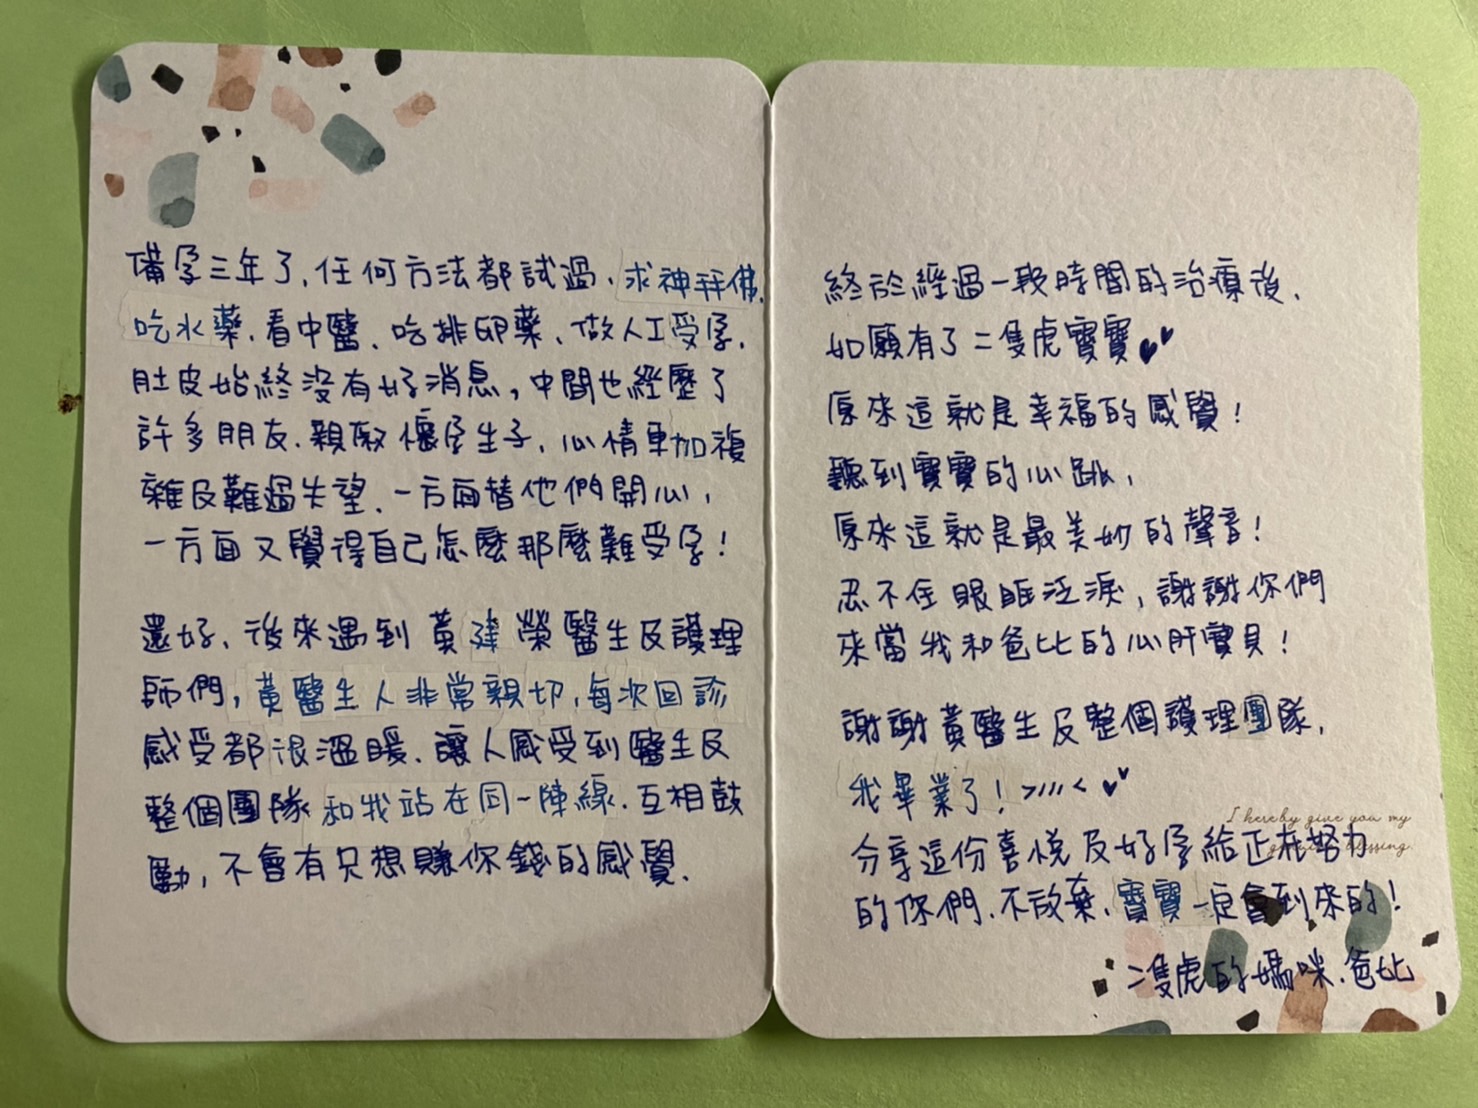 備孕三年了,任何方法都試過、求神拜佛、
吃水藥、看中醫、吃排卵藥、做人工受孕、
肚皮始終沒有好消息,中間也經歷了
許多朋友、親戚懷孕生子,心情更加複
雜及難過失望、一方面替他們開心,
一方面又覺得自己怎麼那麼難受孕!
還好、後來遇到黃建榮醫生及護理
師們,黃醫生人非常親切,每次回診
感受都很溫暖、讓人感受到醫生及
整個團隊和我站在同一陣線、互相鼓
勵,不會有只想賺你錢的感覺、
終於經過一段時間的治療後、
如願有了二隻虎寶寶♥♥
原來這就是幸福的感覺!
聽到寶寶的心跳,
原來這就是最美妙的聲音!
忍不住眼眶泛淚,謝謝你們
來當我和爸比的心肝寶貝!
謝謝黃醫生及整個護理團隊,
我畢業了! >///< ♥♥
I hereby give you my
blessing.
分享這份喜悅及好孕給正在努力
的你們、不放棄、寶寶一定會到來的!
二隻虎的媽咪、爸比